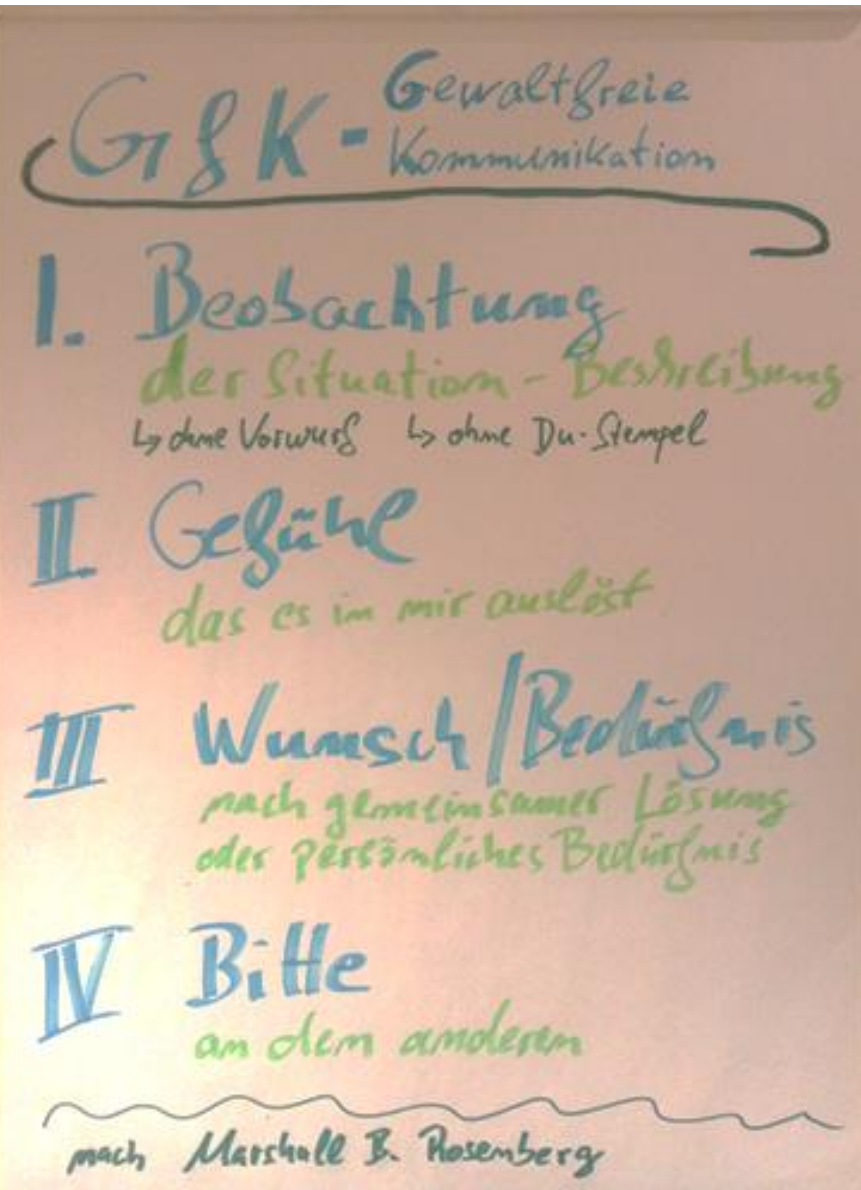 GfK - Gewaltfreie
Kommunikation
I. Beobachtung
der Situation - Beschreibung
↳ ohne Vorwurf ↳ ohne Du-Stempel
II Gefühl
das es in mir auslöst
III Wunsch/Bedürfnis
nach gemeinsamer Lösung
oder persönliches Bedürfnis
IV Bitte
an den anderen
nach Marshall B. Rosenberg